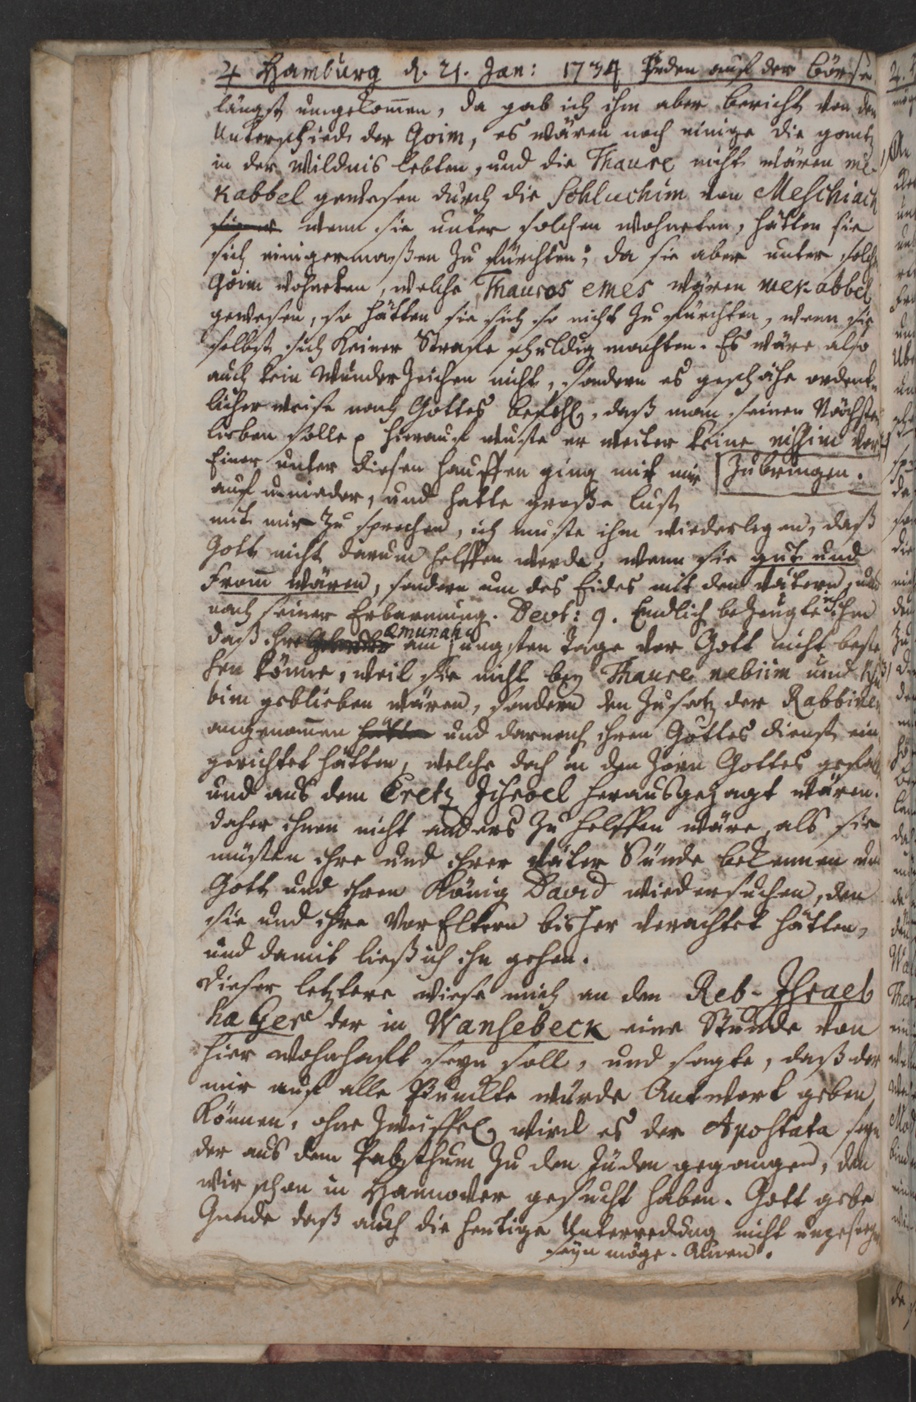 4 Hamburg d. 21. Jan: 1734 Juden auf der Börse
längst umgekommen, da gab ich ihm aber bericht von dem
Unterschiede der Goim, es wären noch einige die gantz
in der Wildnis lebten, und die Thaure nicht wären me-
kabbel gewesen durch die Schluchim von Meschiach
wenn sie unter solchen wohneten, hätten sie
sich einigermaßen zu fürchten; da sie aber unter solche
Goim wohneten, welche Thauras emes wären mekabbel
gewesen, so hätten sie sich so nicht zu fürchten, wenn sie
selbst sich keiner Strafe schuldig machten. Es wäre also
auch kein Wunderzeichen nicht, sondern es geschähe ordent-
licher weise nach Gottes befehl, daß man seinen Nächsten
lieben solle, hierauf wuste er weiter keine nissim vor
Einer unter diesen hauffen ging mit mir zubringen.
auf u. nieder, und hatte große lust
mit mir zu sprechen, ich muste ihm wiederlegen, daß
Gott nicht darum helffen werde, wenn sie gut und
fromm wären, sondern um des Eides mit den Vätern, und
nach seiner Erbarmung. Devt: 9. Endlich bezeugte ich ihm
daß ihre emunah am jüngsten Tage vor Gott nicht beste
hen könne, weil sie nicht bey Thaure nebiim und Ksu
bim geblieben wären, sondern den Zusatz der Rabbinen
angenommen hätten und darnach ihren Gottes dienst ein
gerichtet hätten, welche doch in den Zorn Gottes gefallen
und aus dem Eretz Jisroel herausgejagt wären.
daher ihnen nicht anders zu helffen wäre, als sie
müsten ihre und ihrer Väter Sünde bekennen und
Gott und ihren König David wiedersuchen, den
sie und ihre VorEltern bisher verachtet hätten,
und damit ließ ich ihn gehen.
Dieser letztere wiese mich an den Reb- Jsrael
haGer der in Wansebeck eine Stunde von
hier wohnhafft seyn soll, und sagte, daß der
mir auf alle Puncte würde Antwort geben
können, ohne Zweiffel wird es der Apostata seyn
der aus dem Pabstthum zu den Juden gegangen, den
wir schon in Hannover gesucht haben. Gott gebe
Gnade daß auch die heutige Unterredung nicht
seyn möge. Amen.